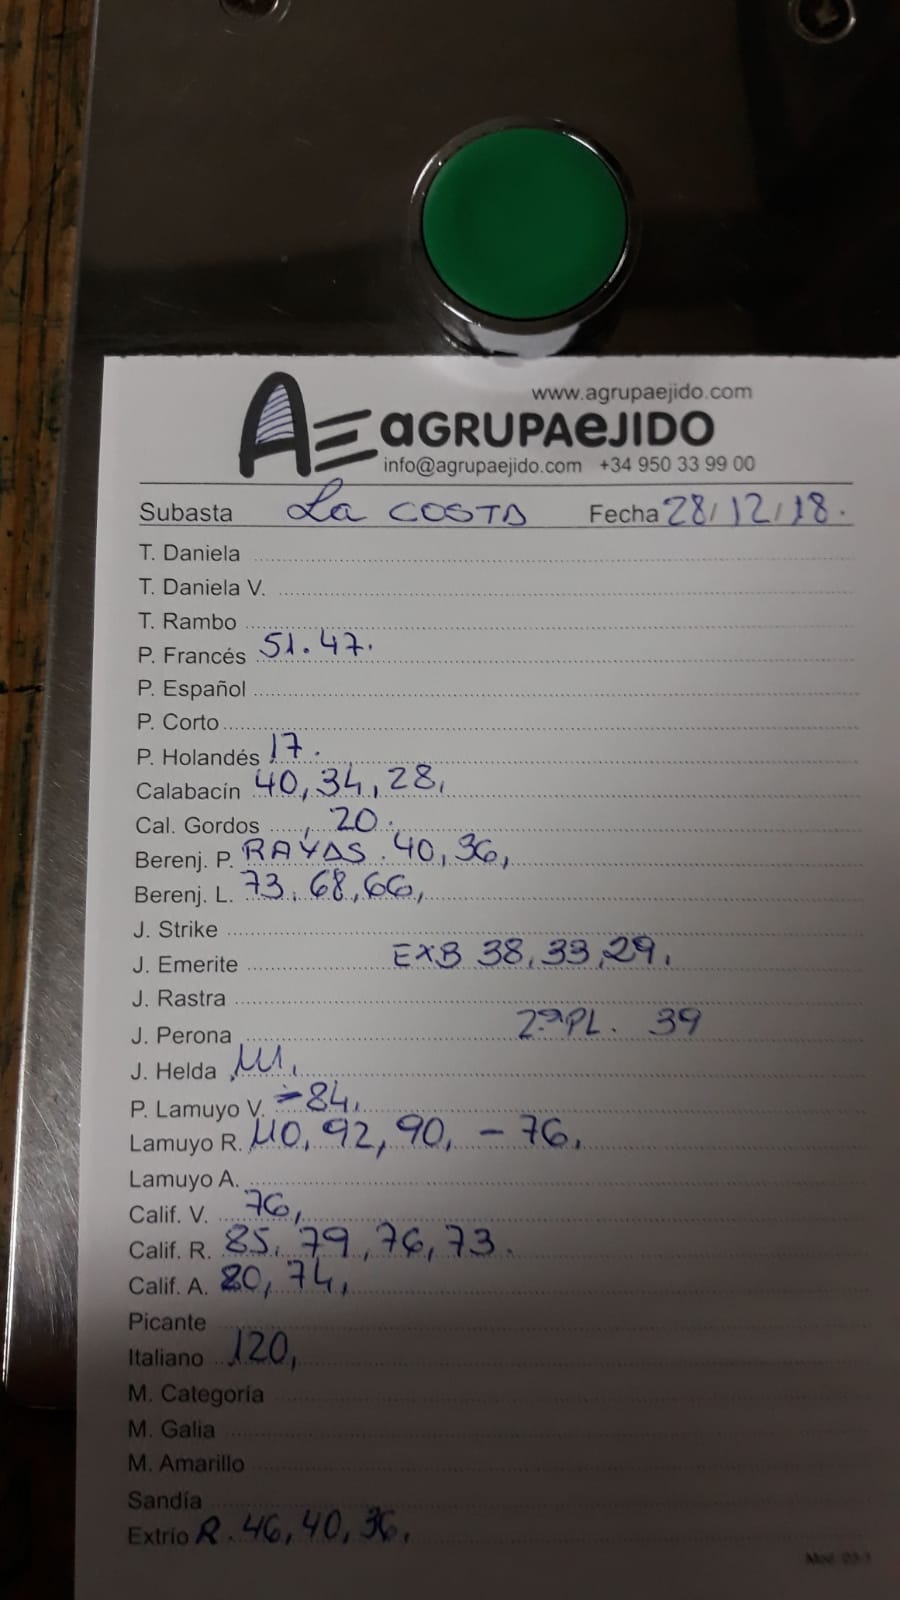 www.agrupaejido.com
AE aGRUPAeJIDO
info@agrupaejido.com +34 950 33 99 00
Subasta La COSTA Fecha 28/12/18.
T. Daniela
T. Daniela V.
T. Rambo
P. Francés 51.47.
P. Español
P. Corto
P. Holandés 17.
Calabacín 40,34,28,
Cal. Gordos , 20.
Berenj. P. RAYAS. 40,36,
Berenj. L. 73,68,66,
J. Strike
J. Emerite EXB 38,33,29.
J. Rastra
J. Perona 2ªPL. 39
J. Helda 111,
P. Lamuyo V. -84,
Lamuyo R. 110,92,90, - 76,
Lamuyo A.
Calif. V. 76,
Calif. R. 85,79,76,73.
Calif. A. 80,74,
Picante
Italiano 120,
M. Categoría
M. Galia
M. Amarillo
Sandía
Extrío R. 46,40,36.